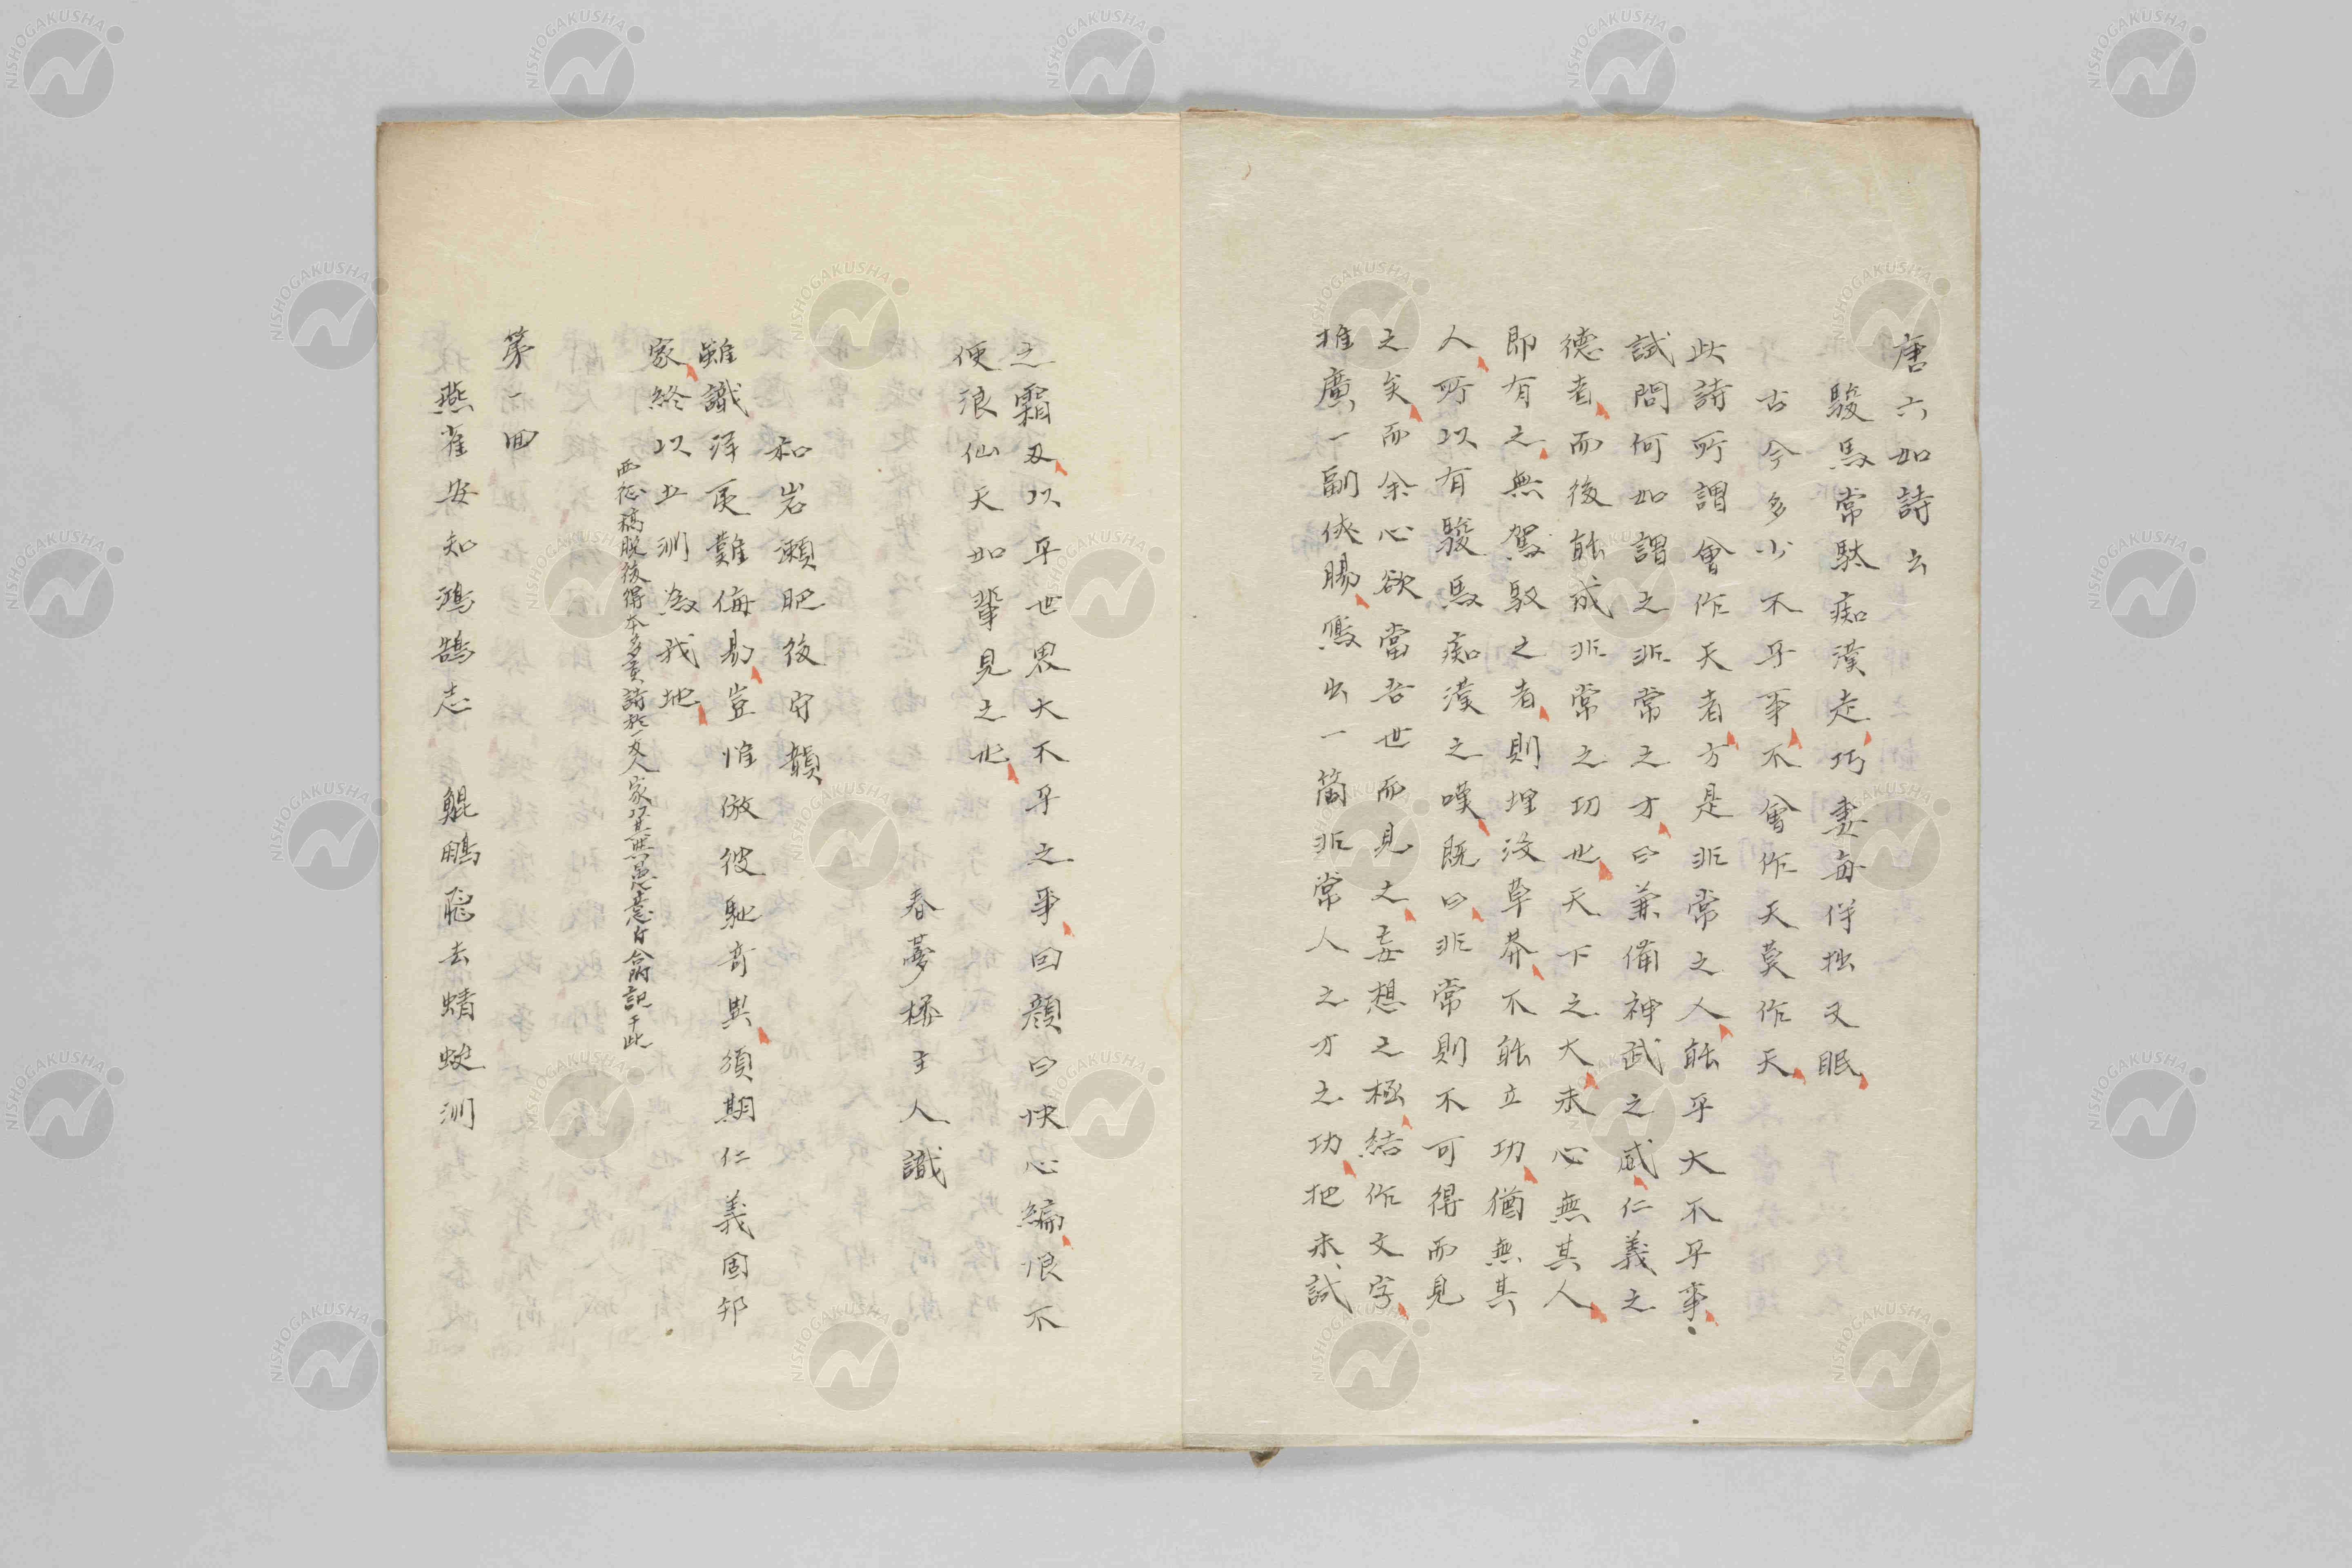 唐六如詩云
駿馬常馱痴漢走巧妻每伴拙夫眠
古今多少不平事不會作天莫作天
此詩所謂會作天者方是非常之人能平大不平事
試問何如謂之非常之才曰兼備神武之威仁義之
德者而後能成非常之功也天下之大未必無其人
即有之無駕馭之者則埋沒草莽不能立功猶無其
人所以有駿馬痴漢之嘆既曰非常則不可得而見
之矣而余心欲當吾世而見之妄想之極結作文字
推廣一副俠腸寫出一箇非常人之才之功把未試
之霜刃以平世界大不平之事回顔曰快心編恨不
便浪仙天如輩見之也
春夢樓主人識
和岩瀬肥後守韻
雖識洋夷難侮易豈惟倣彼馳奇異須期仁義固邦
家終以五洲為我地
西征稿脫後得本多貢詩於友人家以其與愚意合附記于此
第一回
燕雀安知鴻鵠志 鯤鵬飛去蜻蜓洲
NISHOGAKUSHA